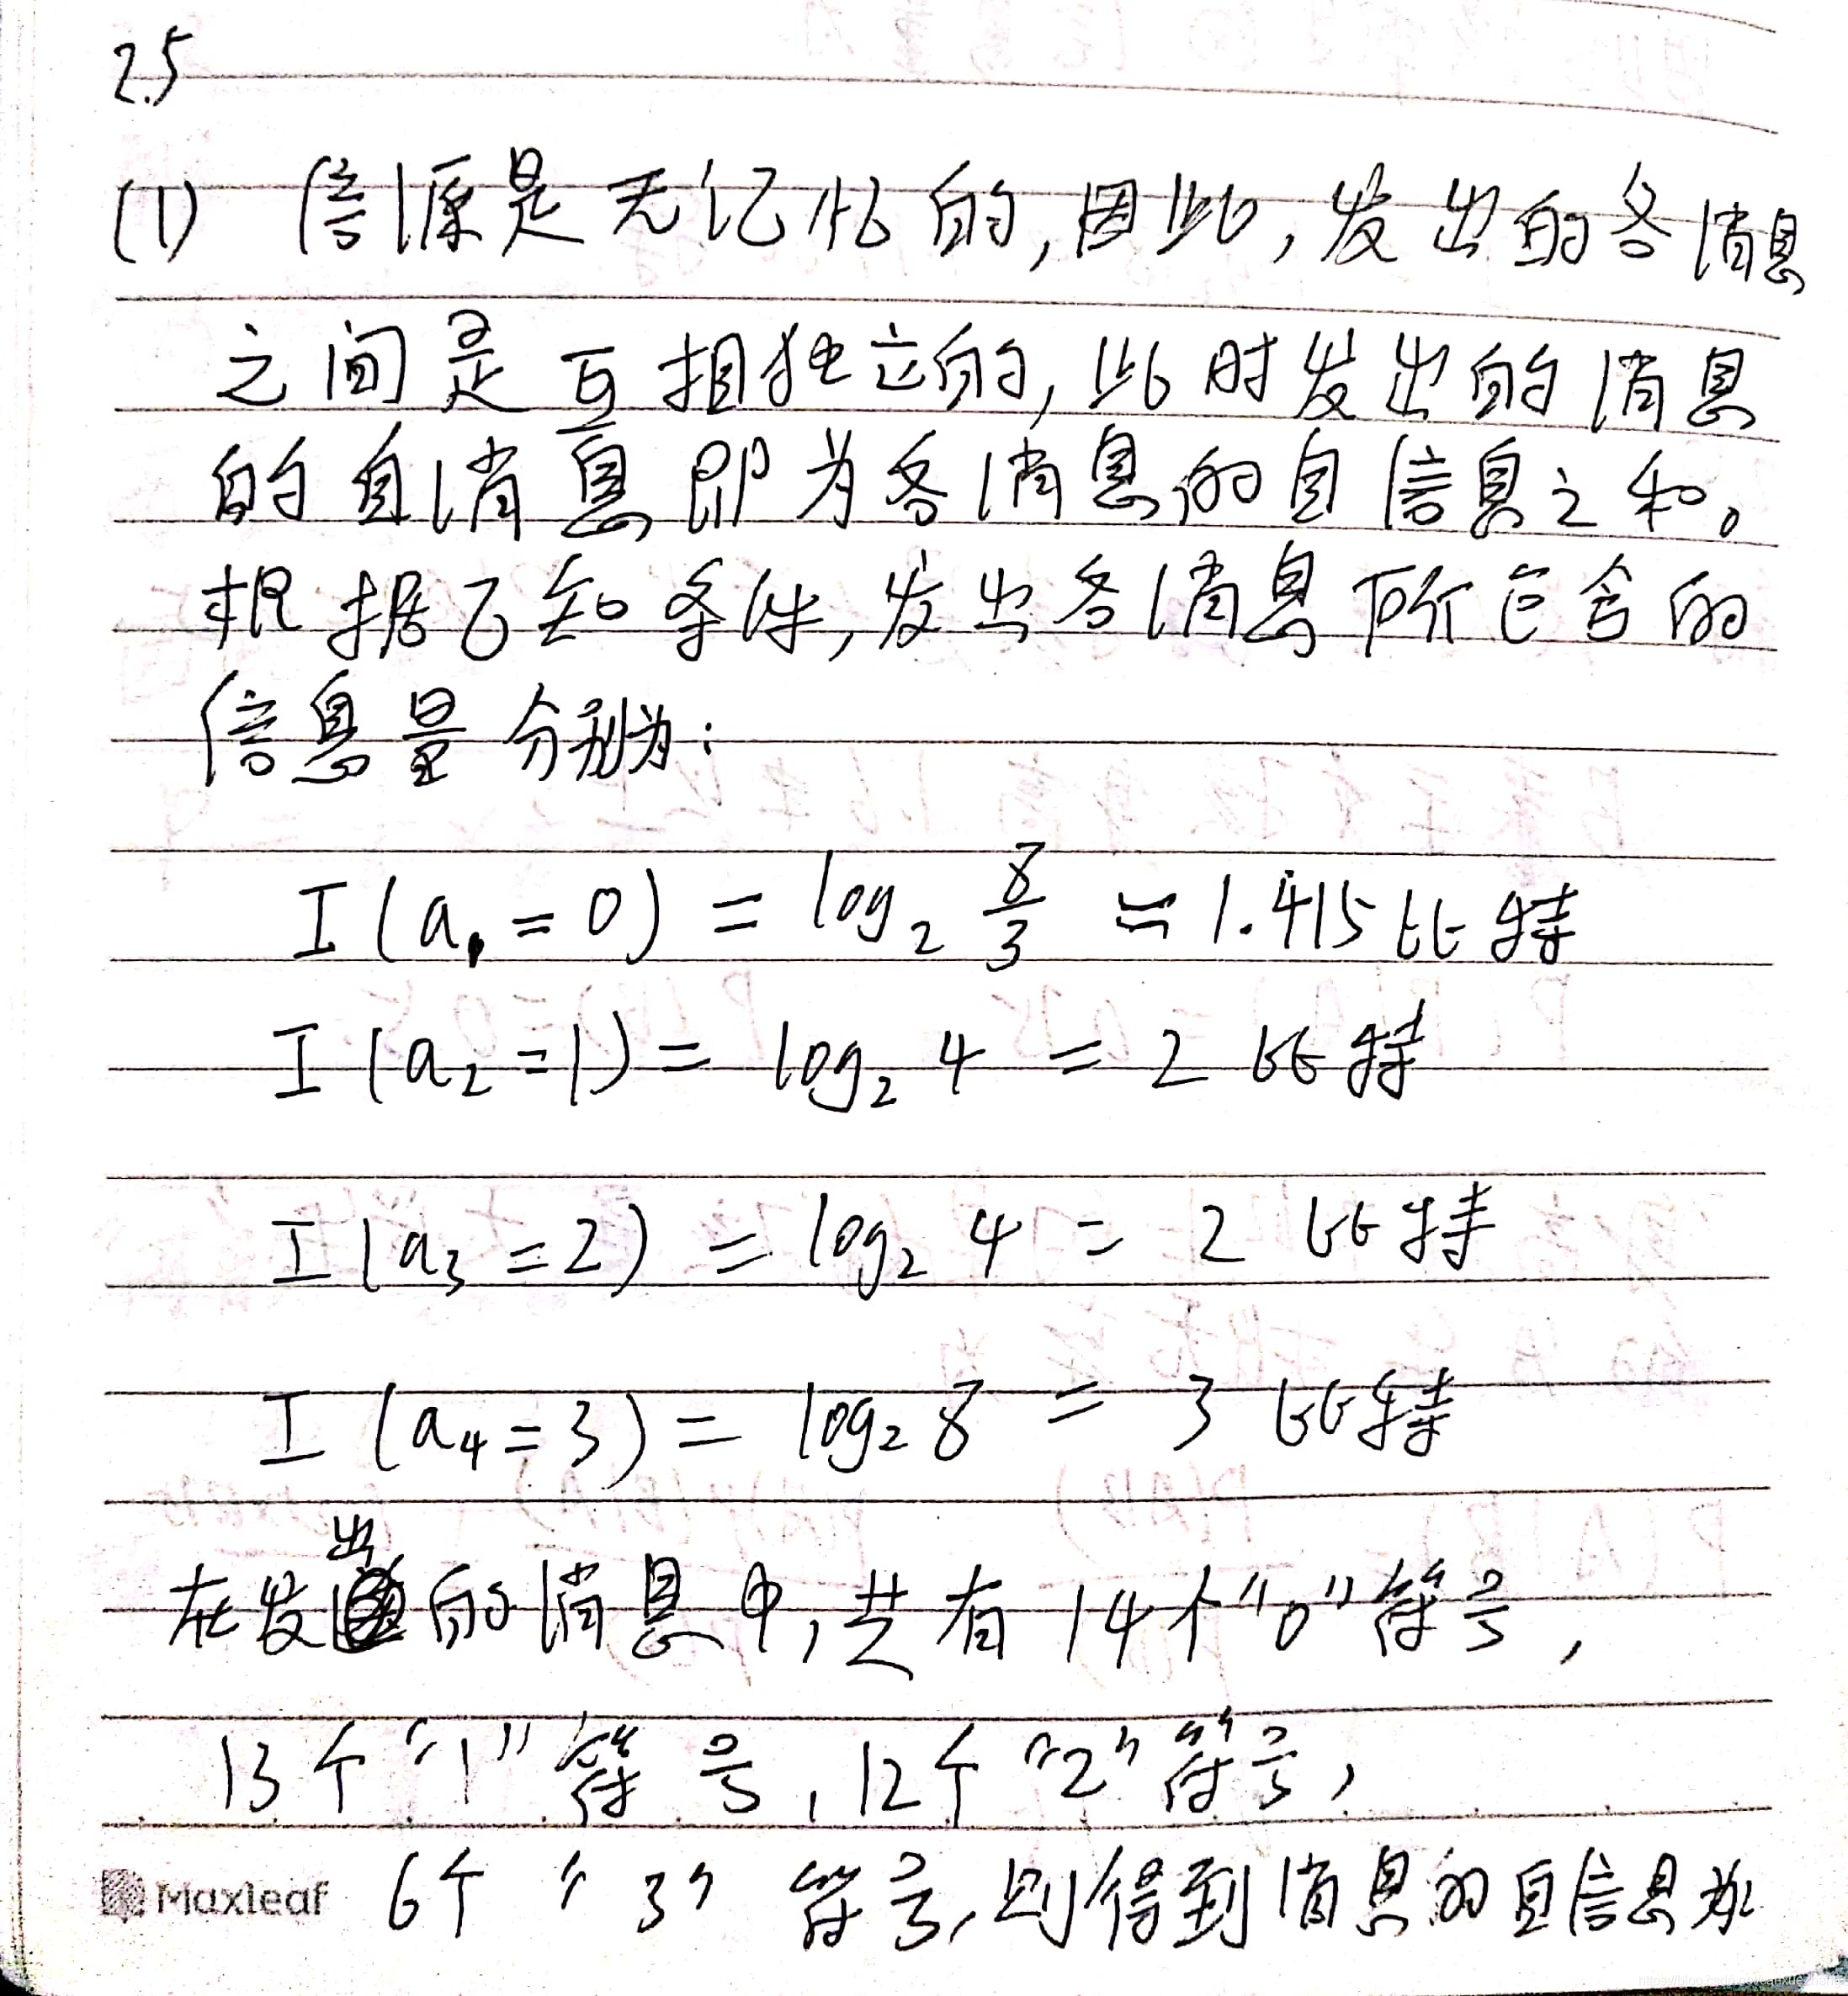 2.5
(1) 信源是无记忆的,因此,发出的各消息
之间是互相独立的,此时发出的消息
的自消息即为各消息的自信息之和。
根据已知条件,发出各消息所包含的
信息量分别为:
I(a₁=0) = log₂ 8/3 ≈ 1.415比特
I(a₂=1) = log₂ 4 = 2 比特
I(a₃=2) = log₂ 4 = 2 比特
I(a₄=3) = log₂ 8 = 3 比特
在发出的消息中,共有14个“0”符号,
13个“1”符号,12个“2”符号,
6个“3”符号,则得到消息的自信息为
Maxleaf